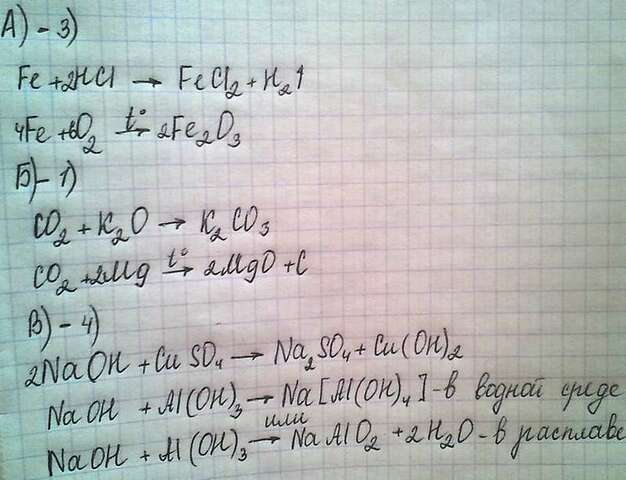 А) - 3)
Fe + 2HCl → FeCl₂ + H₂↑
4Fe + 6O₂ t°→ 2Fe₂O₃
Б) - 1)
CO₂ + K₂O → K₂CO₃
CO₂ + 2Mg t°→ 2MgO + C
В) - 4)
2NaOH + CuSO₄ → Na₂SO₄ + Cu(OH)₂
NaOH + Al(OH)₃ → Na[Al(OH)₄] - в водной среде
или
NaOH + Al(OH)₃ → NaAlO₂ + 2H₂O - в расплаве